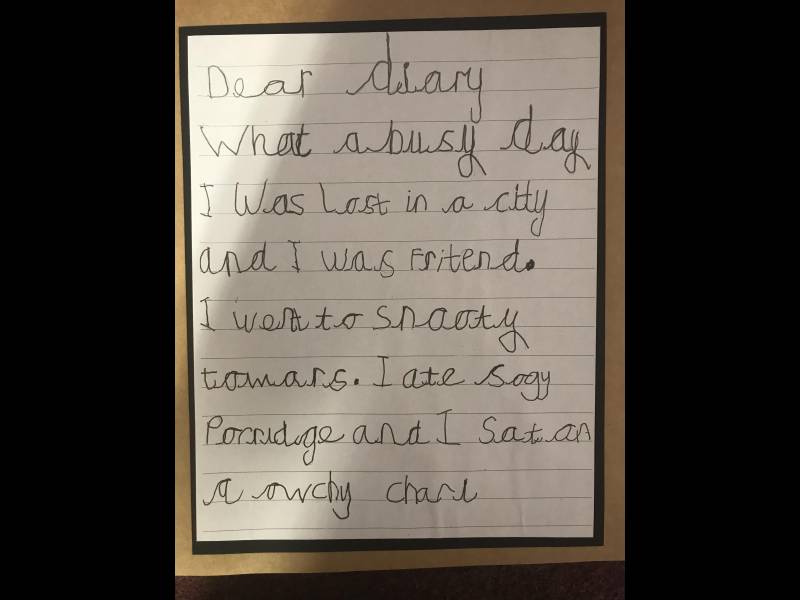 Dear diary
What a busy day
I Was Lost in a city
and I was Fritend.
I went to snooty
tomars. I ate sogy
Porridge and I Sat on
a owchy chari